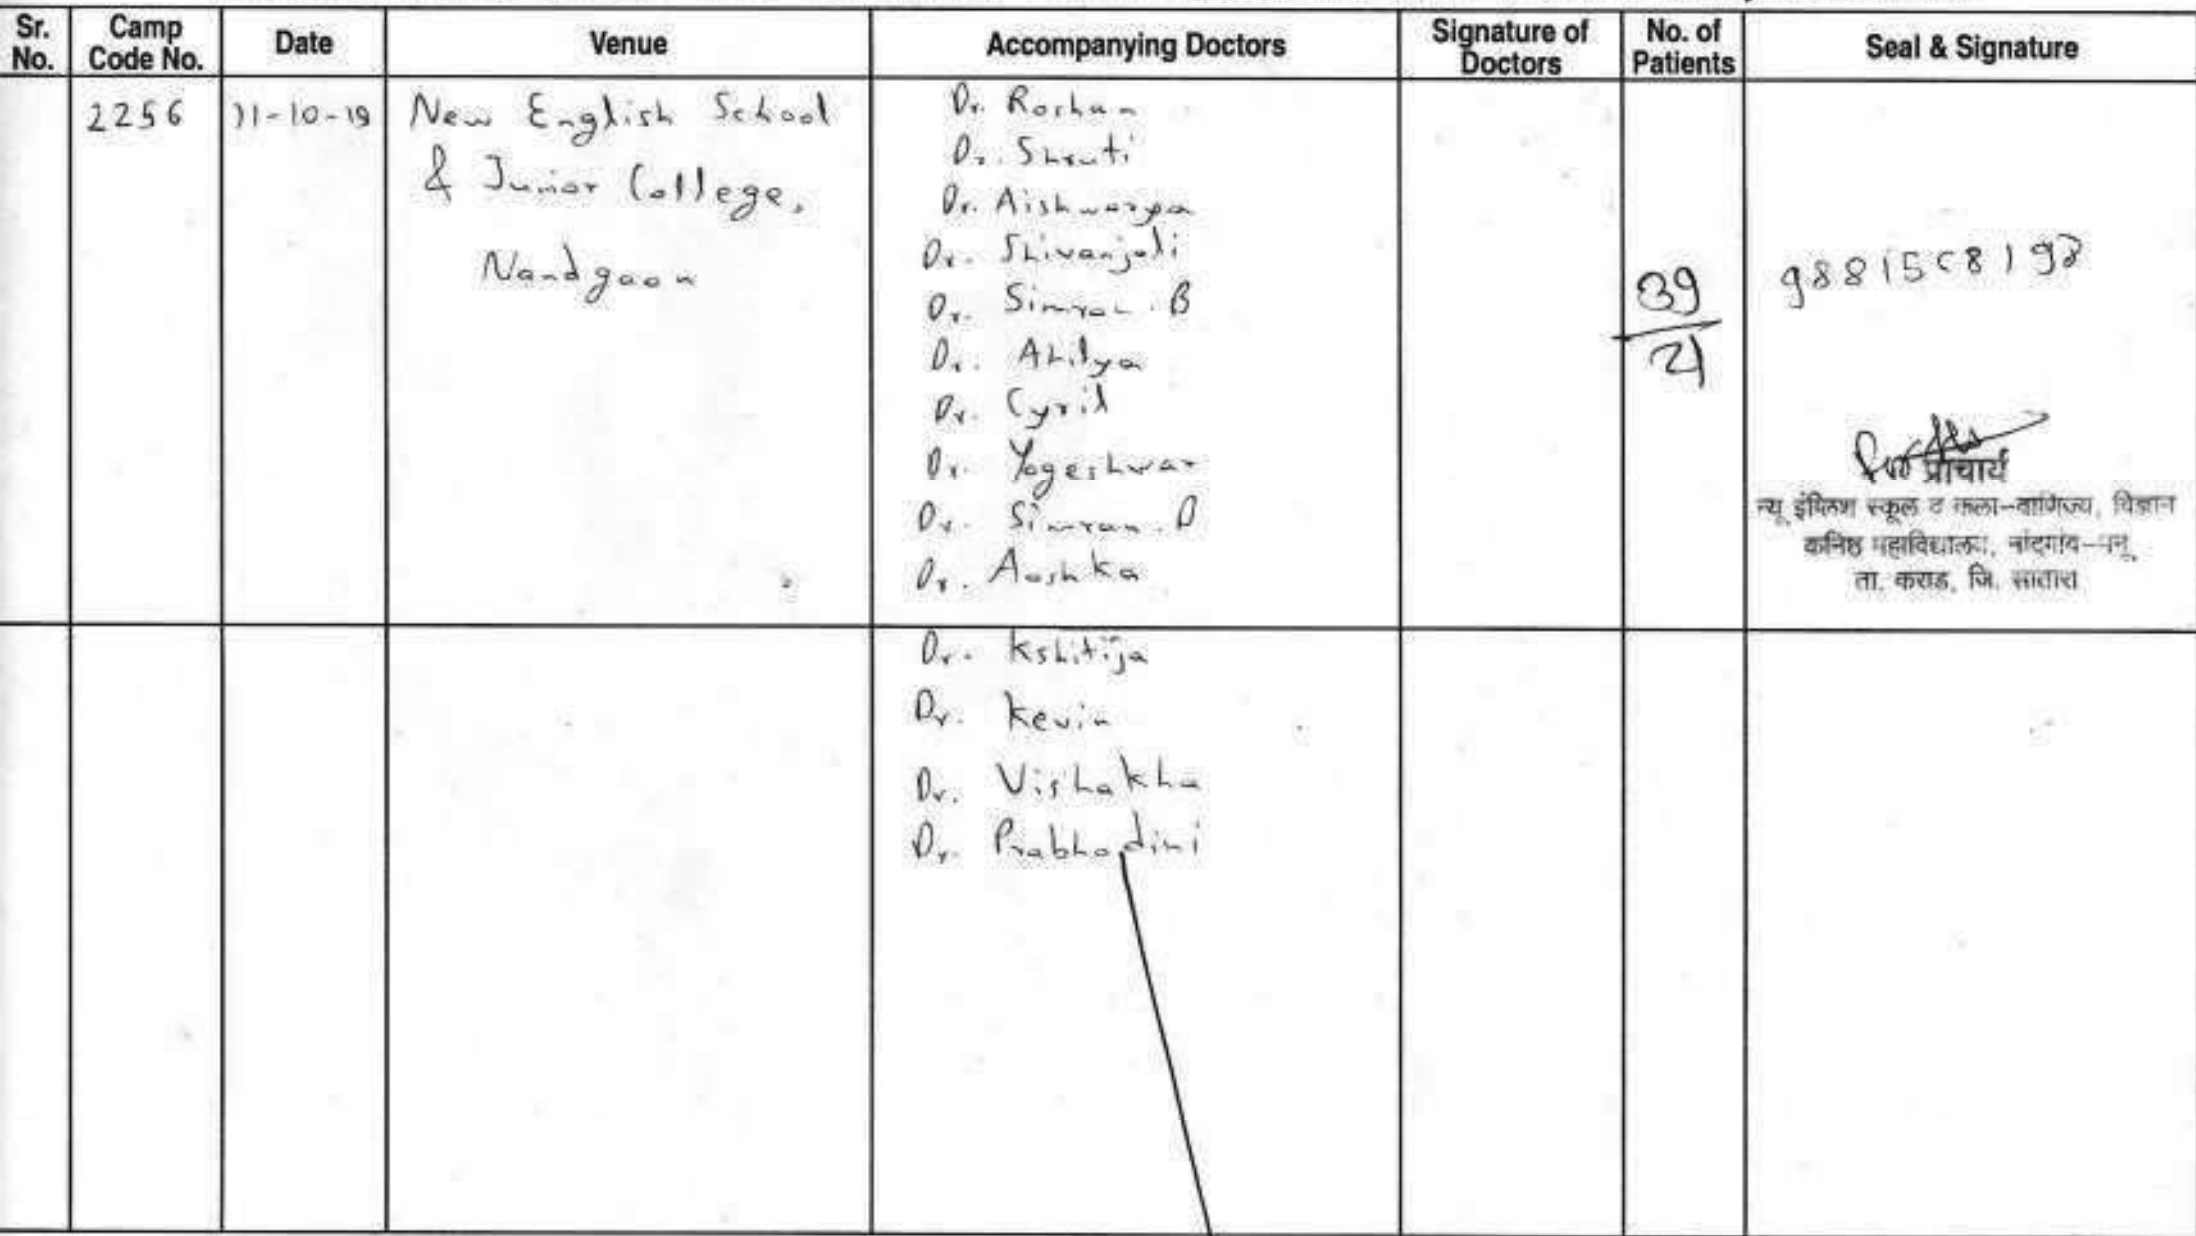 Sr. No.
Camp Code No.
Date
Venue
Accompanying Doctors
Signature of Doctors
No. of Patients
Seal & Signature
2256
11-10-19
New English School
& Junior College,
Nandgaon
Dr. Roshan
Dr. Shruti
Dr. Aishwarya
Dr. Shivanjali
Dr. Simran. B
Dr. Ahilya
Dr. Cyril
Dr. Yogeshwar
Dr. Simran. D
Dr. Aashka
39
21
प्राचार्य
न्यू इंग्लिश स्कूल व कला-वाणिज्य, विज्ञान
कनिष्ठ महाविद्यालय, नांदगांव-मनू
ता. कराड, जि. सातारा
Dr. Kshitija
Dr. Kevin
Dr. Vishakha
Dr. Prabhodini